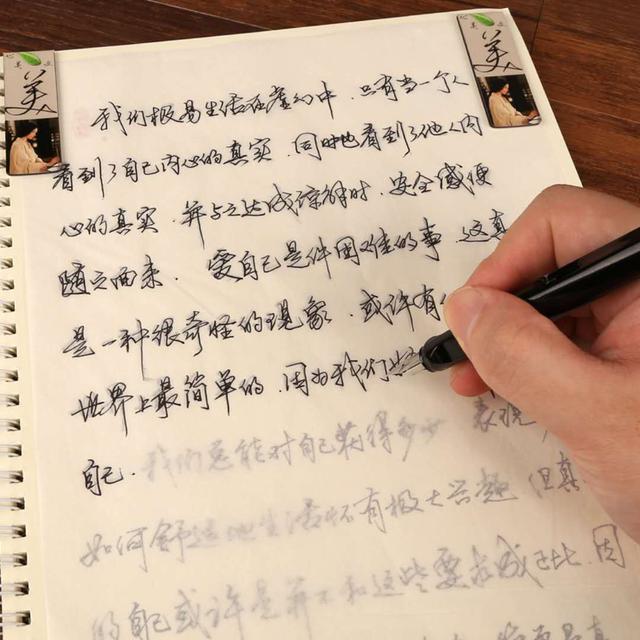 美
美
我们极易生活在虚幻中，只有当一个人
看到了自己内心的真实，同时也看到了他人内
心的真实，并与之达成谅解时，安全感便
随之而来。爱自己是件困难的事，这真
是一种很奇怪的现象，或许有
世界上最简单的，因为我们
自己。我们总能对自己获得多少 表现
如何舒适地生活怀有极大兴趣，但真
的自己或许是并不和这些要求成正比，因